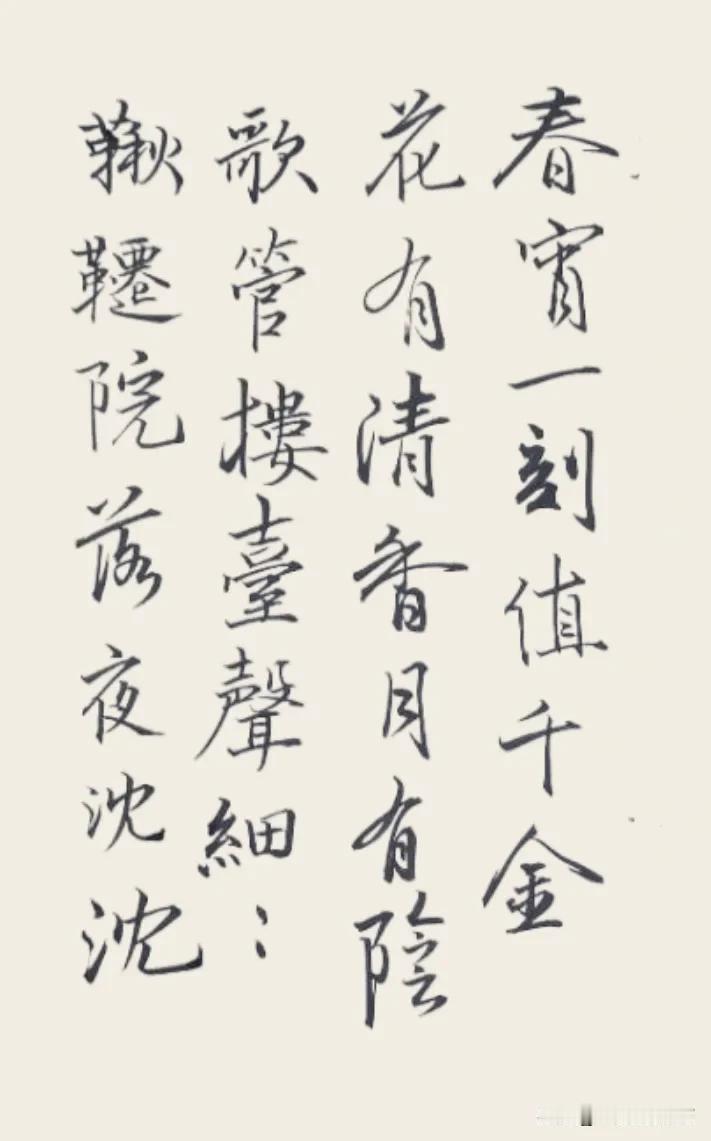 春宵一刻值千金
花有清香月有陰
歌管樓臺聲細：
鞦韆院落夜沈沈